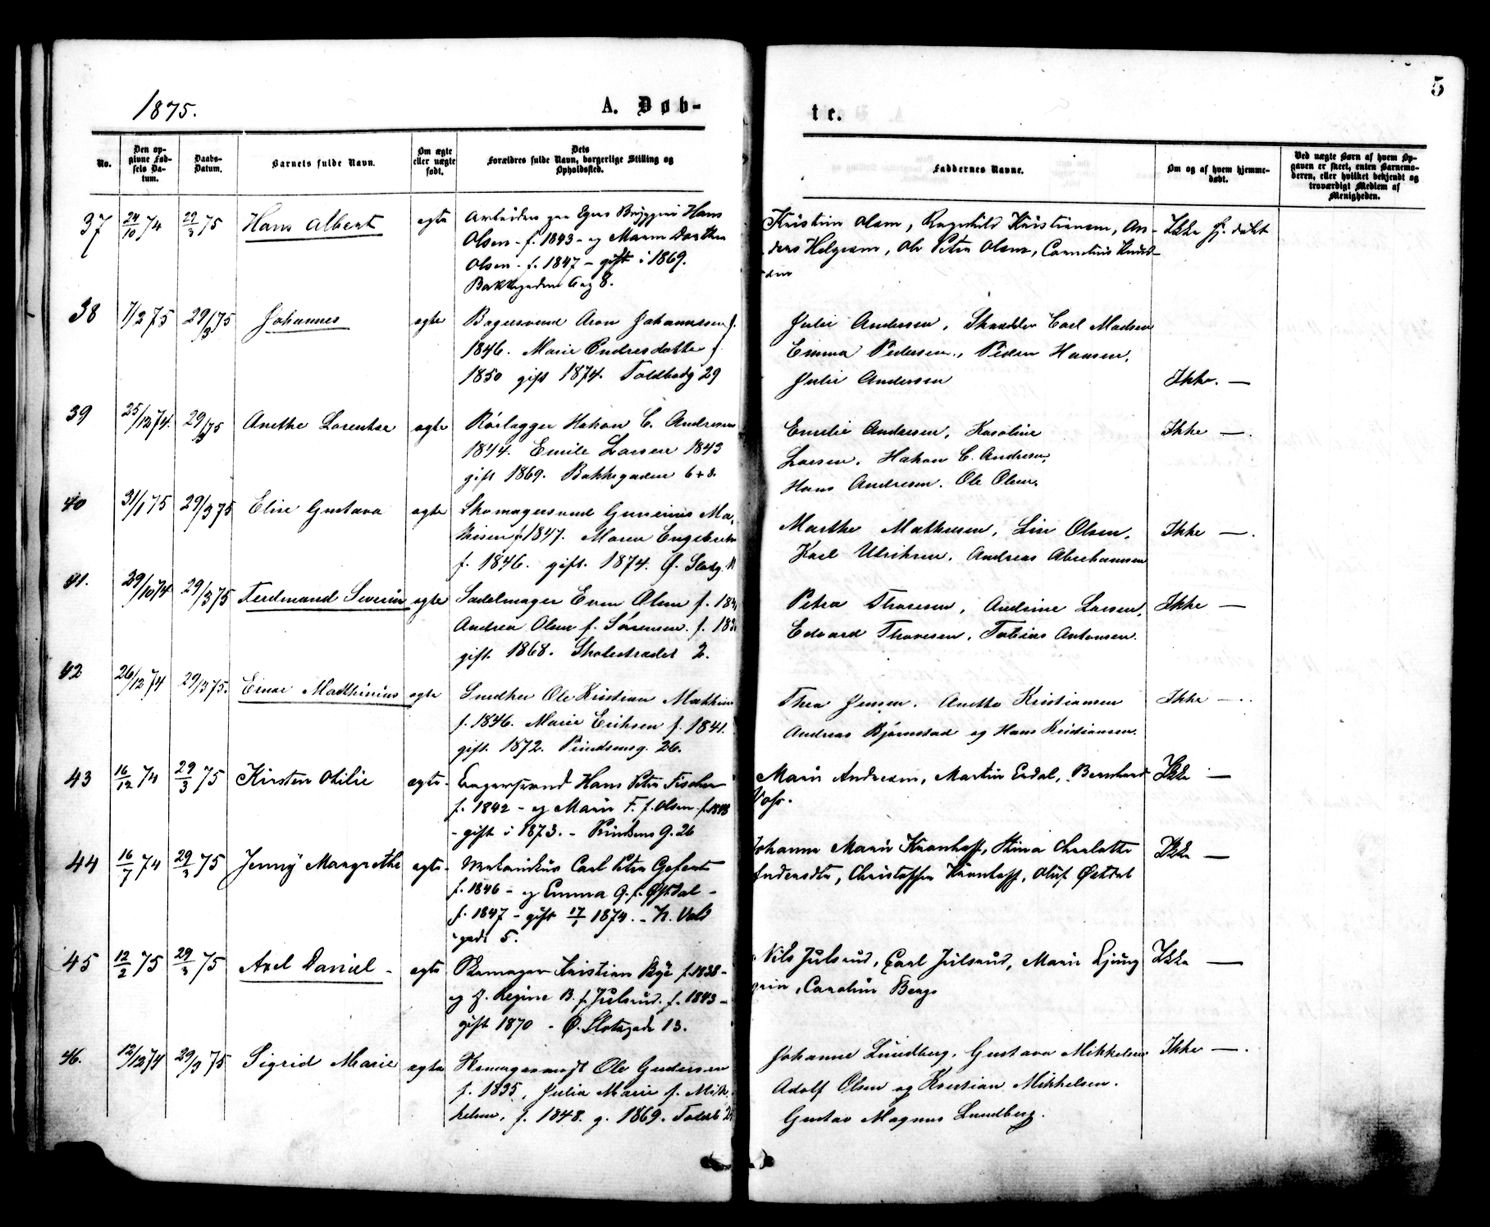 5
1875.
A. Døb-
te.
No.
Den op-
givne Fød-
sels Da-
tum.
Daabs-
Datum.
Barnets fulde Navn.
Om ægte
eller uægte
født.
Dets
Forældres fulde Navn, borgerlige Stilling og
Opholdssted.
Faddernes Navne.
Om og af hvem hjemme-
døbt.
Ved uægte Børn af hvem Op-
gaven er skeet, enten Barnemo-
deren, eller hvilket bekjendt og
troværdigt Medlem af
Menigheden.
37 24/10 74 29/3 75 Hans Albert egte
Hans
Olsen - f. 1843 - og Maren
Olsen - f. 1847 - gift i 1869.
Bakkegaden 6 og 8.
Kristine Olsen, Ragnhild Kristiansen, An-
ders Helgesen, Ole Peter Olsen, Cornelius Knud-
sen
Ikke hj. døbt
38 7/2 75 29/3 75 Johannes egte
Bagersvend Aron Johannesen f.
1846. Marie Endresdatter f.
1850 gift 1874. Toldbodg 29
Julie Andersen, Carl Madsen
Emma Pedersen, Peder Hansen,
Julie Andersen
Ikke. —
39 25/12 74. 29/3 75 Anethe Laurentze egte
Rørlægger Hakon C. Andresen
1844. Emilie Larsen 1843
gift 1869. Bakkegaden 6+8.
Emilie Andresen, Karoline
Larsen, Hakon C. Andresen,
Hans Andresen. Ole Olsen.
Ikke —.
40 31/1 75 29/3 75 Elise Gustava egte
Skomagersvend Ma-
thisen f. 1847. Maren
f. 1846. gift. 1874. Ø.
Marthe Mathesen, Lise Olsen,
Karl Ulriksen, Andreas Abrahamsen
Ikke —.
41. 29/10 74 29/3 75 Ferdinand Severin egte
Sadelmager Even Olsen f.
Andrea Olsen f. Sørensen. f.
gift. 1868. Skolestrædet 2.
Petra Thoresen, Andrine Larsen,
Edvard Thoresen, Tobias Antonsen.
Ikke —
42 26/12 74 29/3 75. Einar Matthinius egte
Snedker Ole Kristian
f. 1846. Marie Eriksen f. 1841.
gift. 1872. Prindsensg. 26.
Thea Jensen. Anette Kristiansen
Andreas Bjørnstad og Hans Kristiansen.
Ikke —
43 16/12 74 29/3 75 Kirsten Otilie egte.
Hans Peter Fischer
f. 1842 - og Marie F. f. Olsen - f. 1848
- gift i 1873. - Prindsens G. 26
Marie Andresen, Martin Erdal, Bernhard
Voss.
Ikke —
44 16/7 74 29/3 75 Jenny Margrethe egte.
Mekanikus Carl Peter
f. 1846 - og Emma G. f. Øfstdal -
f. 1847 - gift 17/1 1874. - N. Vold
gade 5.
Johanne Marie Kronhoff, Stina Charlotte
Andersdtr, Christoffer Kronhoff, Oluf
Ikke —
45 12/2 75 29/3 75 Axel Daniel - egte
Skomager Kristian Bye f. 1838 -
og Regine B. f. Julsrud. f. 1843 -
gift 1870 - Ø. Slotsgade 13.
Nils Julsrud, Carl Julsrud, Marie Ljung
gren, Caroline Berge
Ikke —
46. 12/12 74 29/3 75 Sigrid Marie egte
Ole Gudersen
f. 1835, Julia Marie f. Mik-
kelsen, f. 1848. g. 1869. Toldb
Johanne Lundberg, Gustava Mikkelsen
Adolf Olsen og Kristian Mikkelsen.
Gustav Magnus Lundberg.
Ikke —.